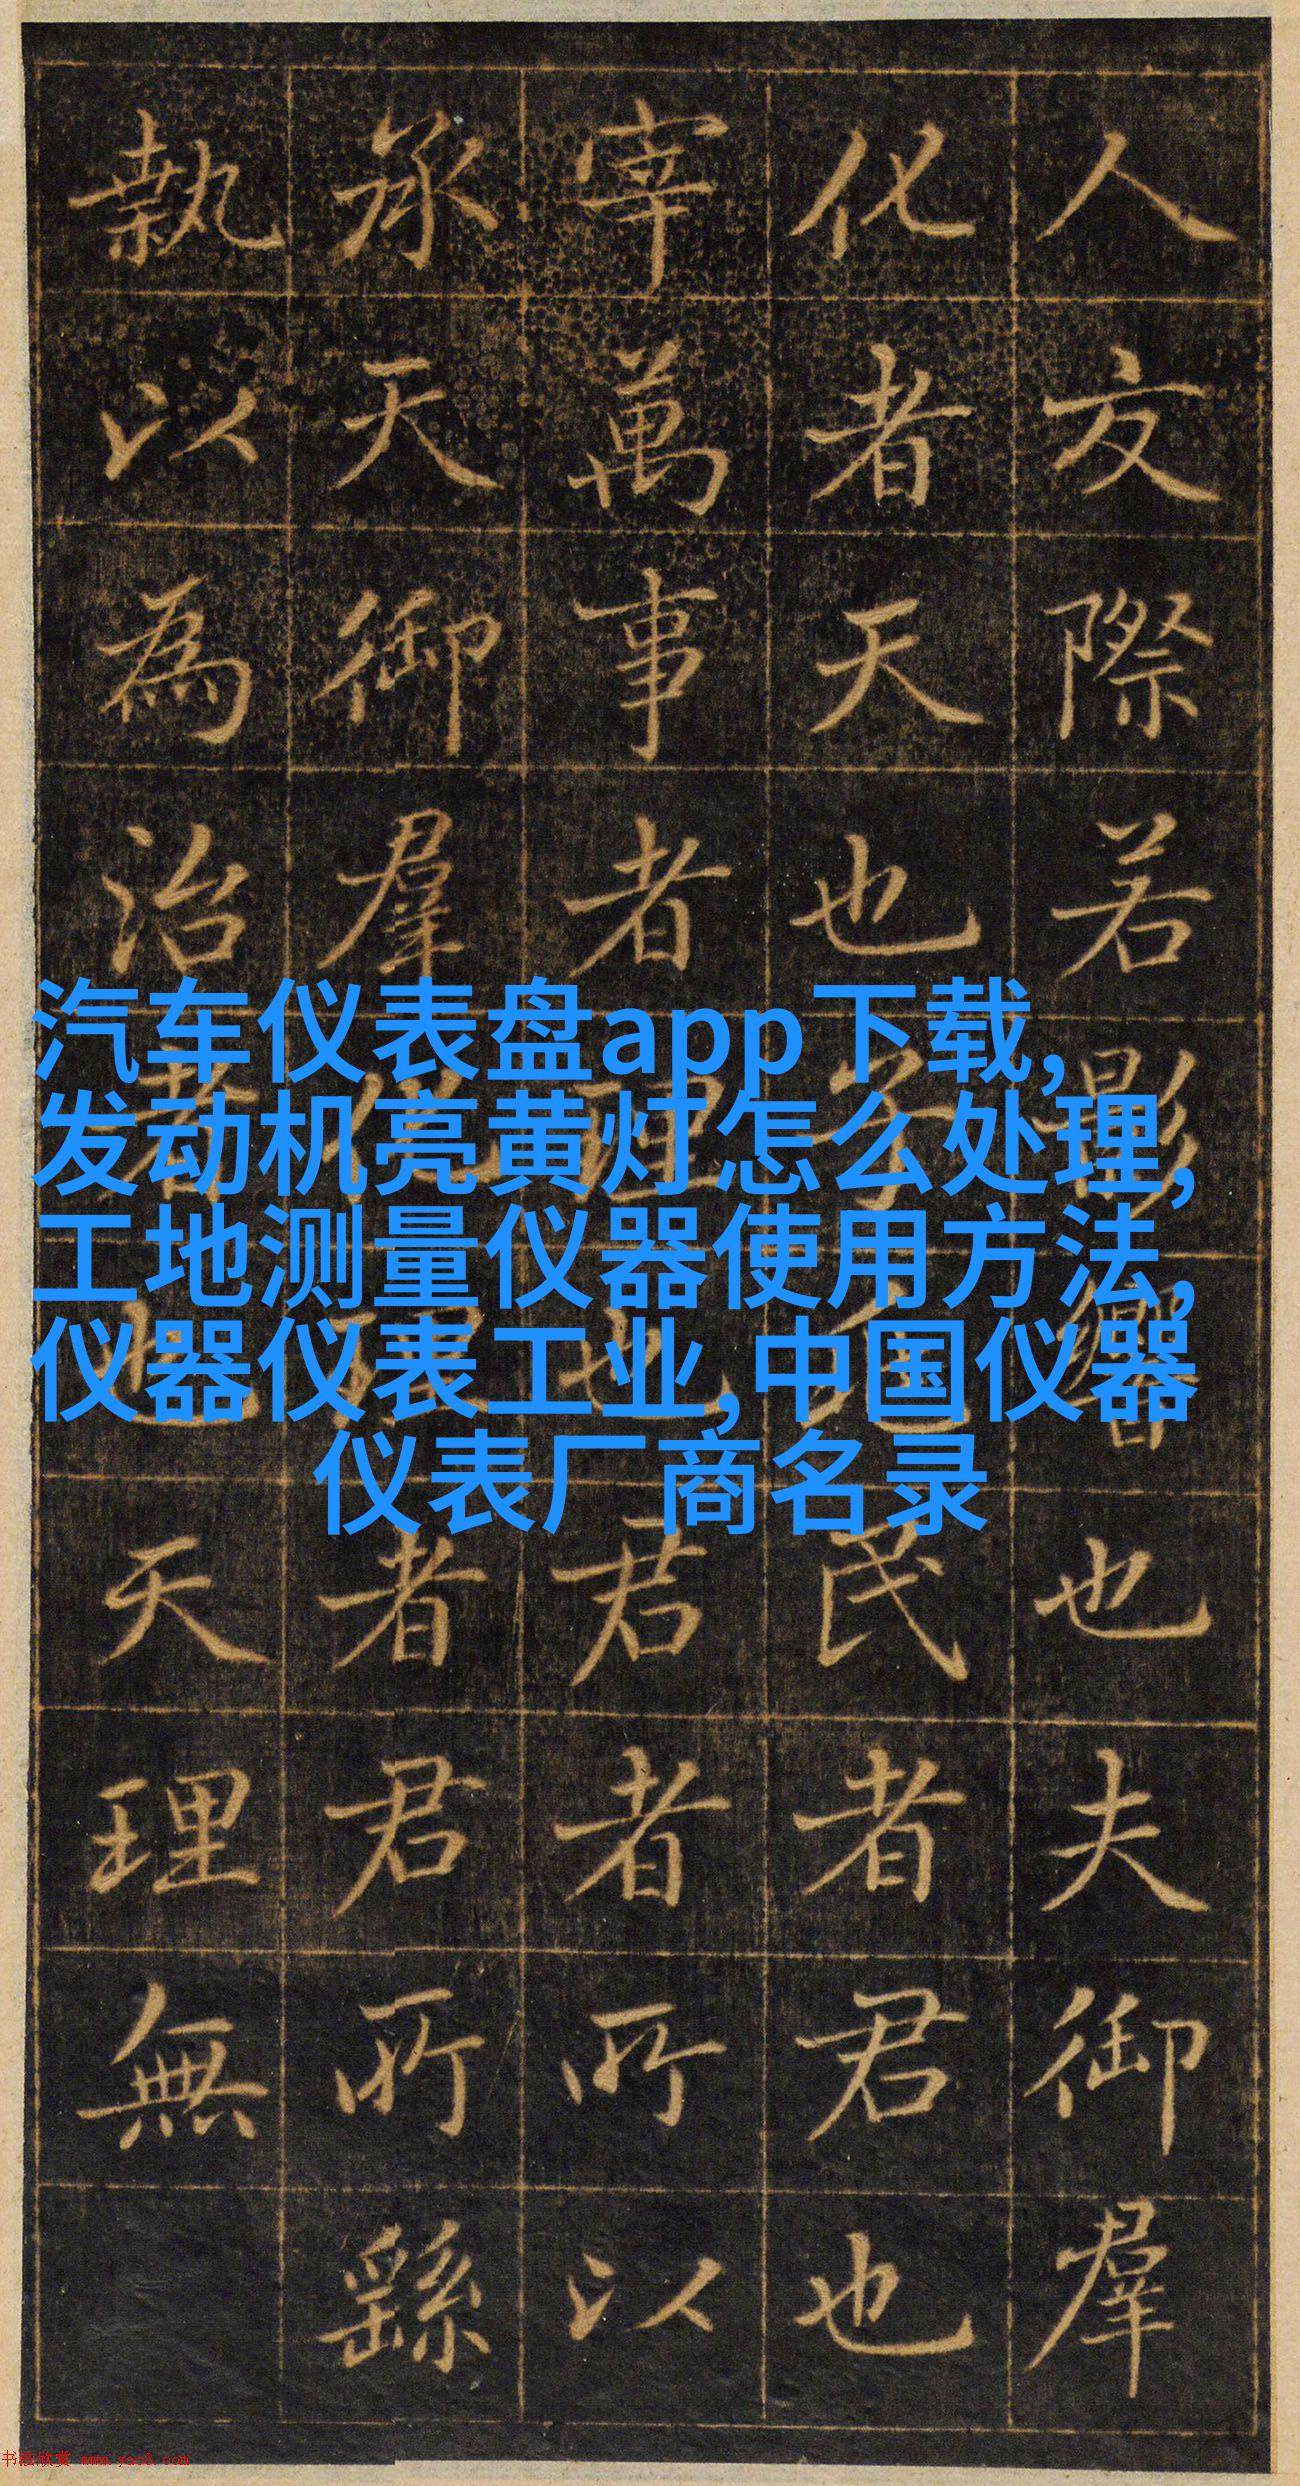 人友際若影響也夫御羣
化者天也字民者君也
宰萬事者理也君者所以
承天御羣化者君所繇
執以為治者也天理無
汽车仪表盘app下载,
发动机亮黄灯怎么处理,
工地测量仪器使用方法,
仪器仪表工业,中国仪器
仪表厂商名录
书法欣赏 www.yac8.com